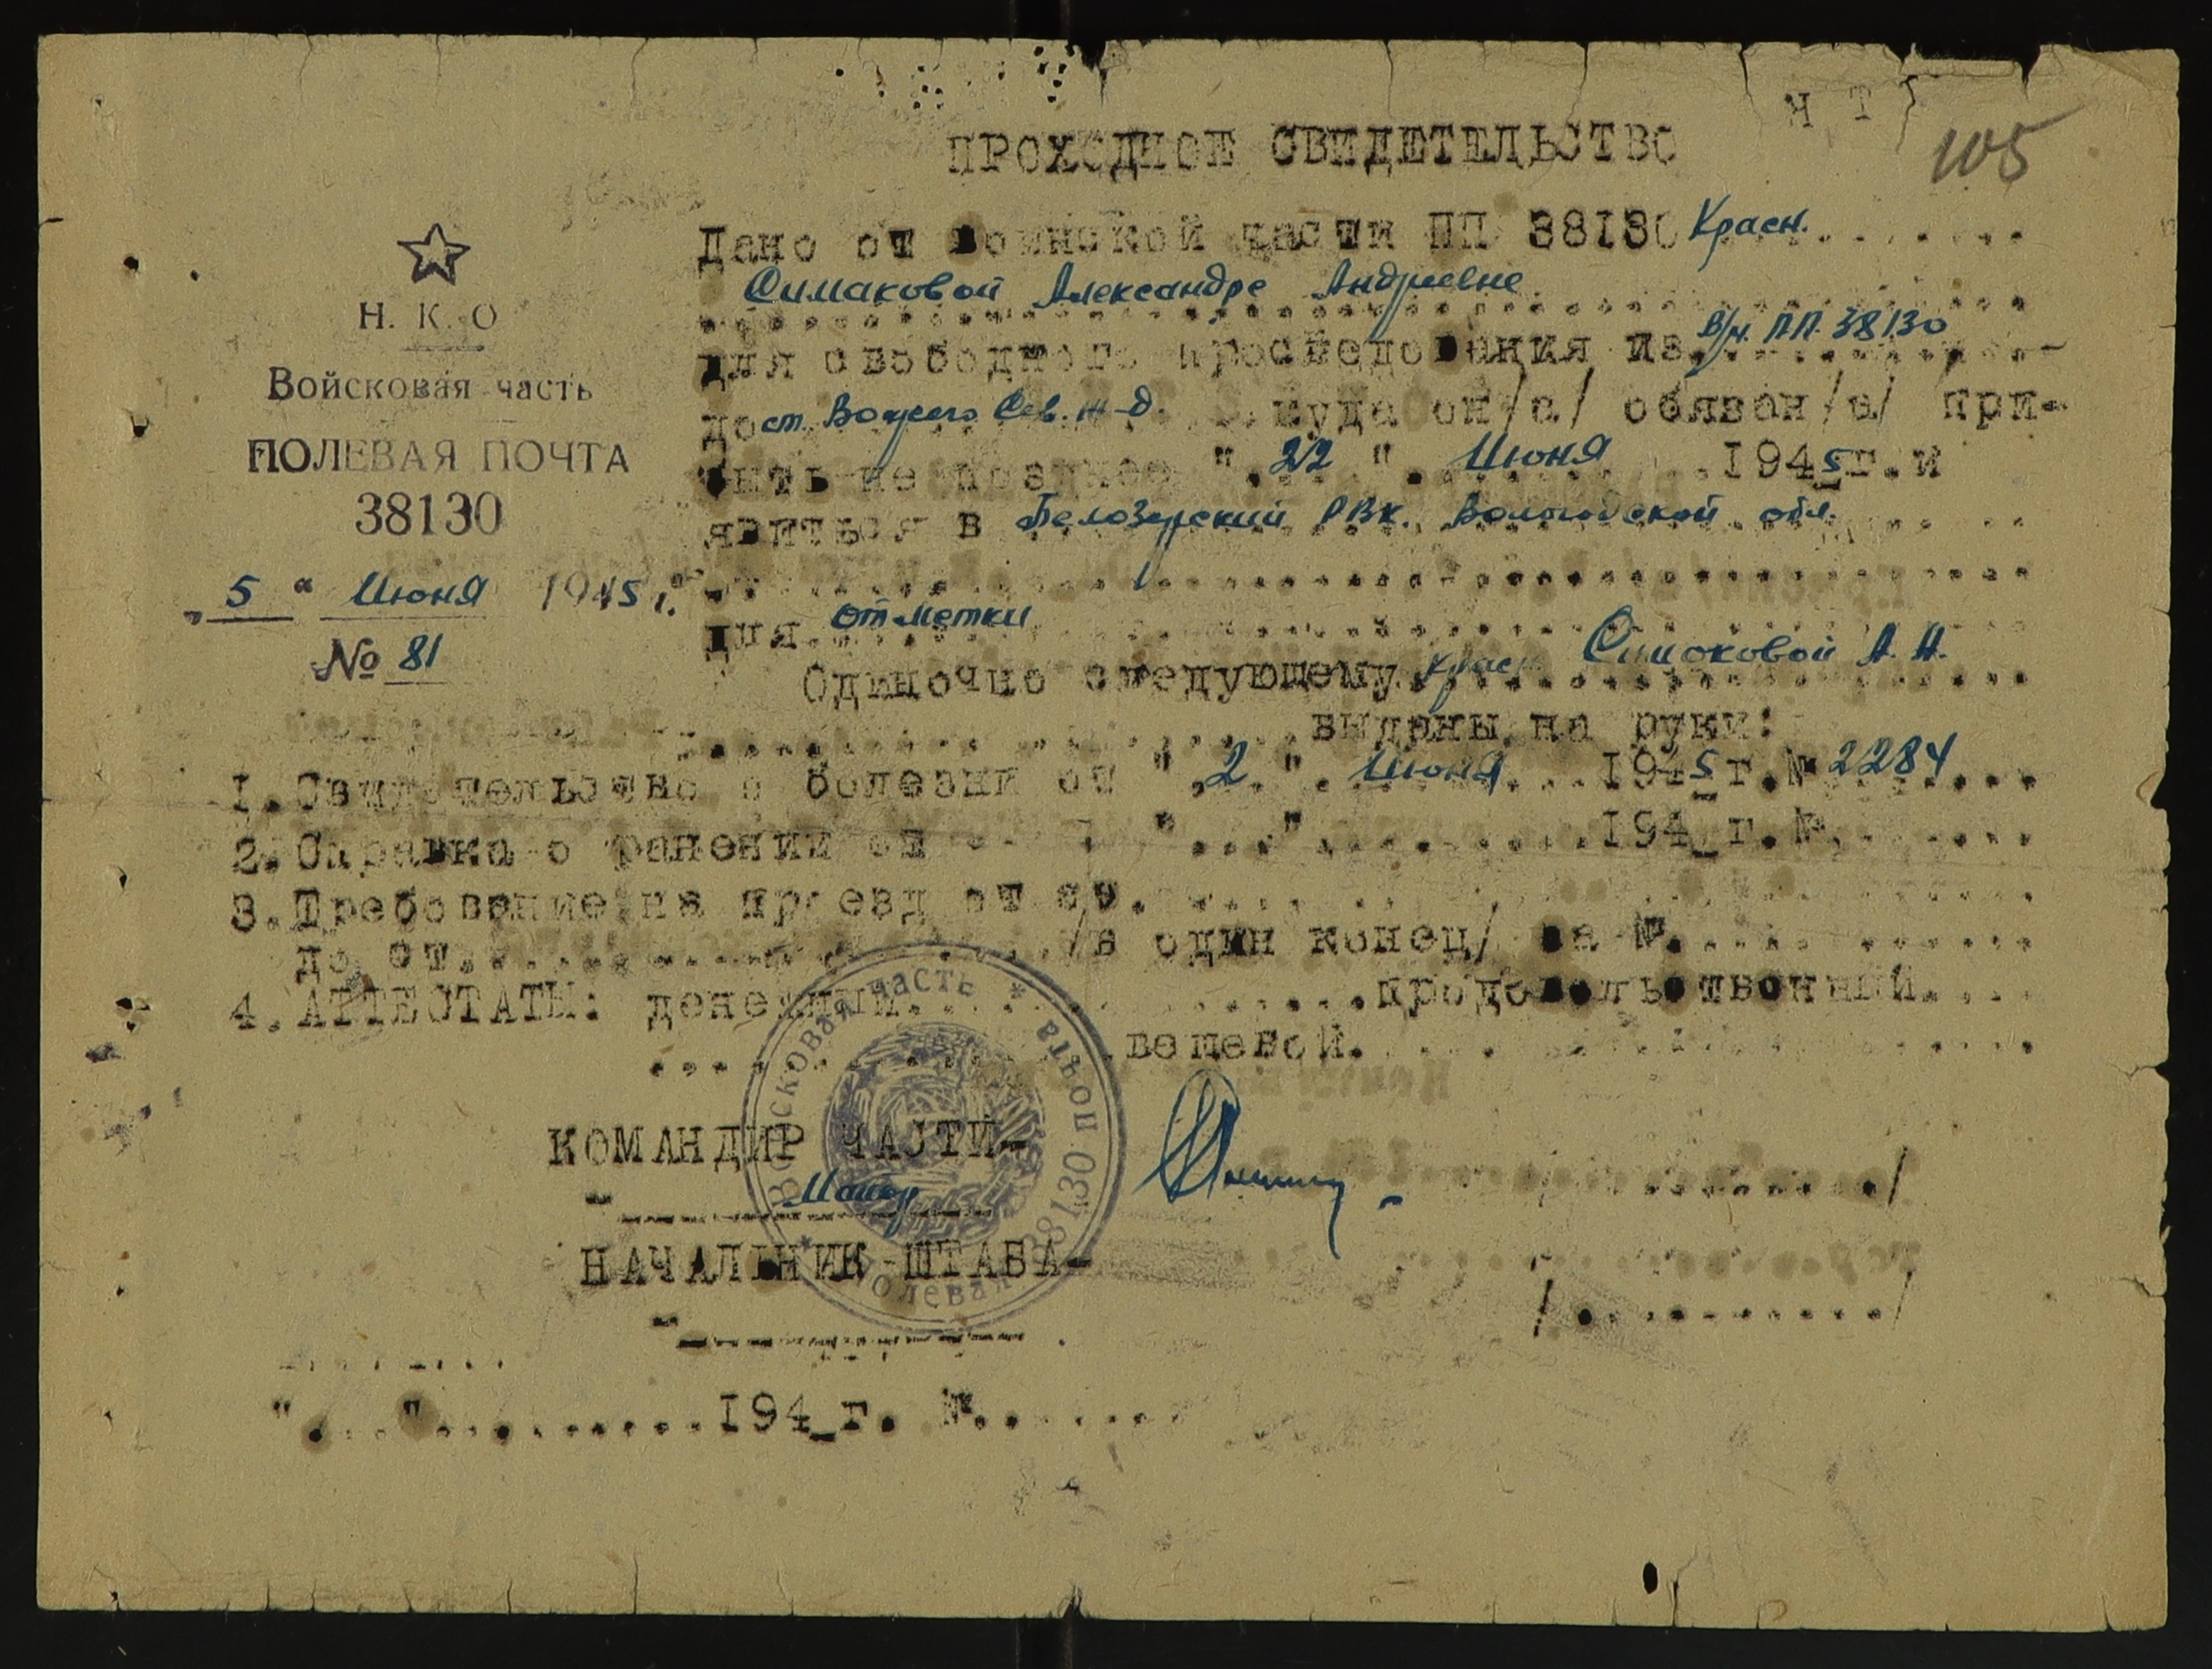 Н Т
105
ПРОХОДНОЕ СВИДЕТЕЛЬСТВО
☆
Н. К. О
Войсковая часть
ПОЛЕВАЯ ПОЧТА
38130
„ 5 " Июня 1945 г.
№ 81
Дано от воинской части ПП 38130 Красн.
Симаковой Александре Андреевне
для свободного проследования из в/ч. П.П. 38130
до ст. Вожега Сев. ж-д. куда он/а/ обязан/а/ при-
быть не позднее "22" Июня 1945 г. и
явиться в Белозерский РВК. Вологодской обл.
для отметки
Одиночно следующему Красн. Симаковой А. А.
выданы на руки:
1. Свидетельство о болезни от "2" Июня 1945 г. № 2284
2. Справка о ранении от "..." 194_ г. №
3. Требование на проезд от ст.
до ст. /в один конец/ за №
4. АТТЕСТАТЫ: денежный продовольственный
вещевой
КОМАНДИР ЧАСТИ-
"Майор
/
НАЧАЛЬНИК ШТАБА-
"
/ /
"..." 194_ г. №
Войсковая часть * Полевая почта 38130 *